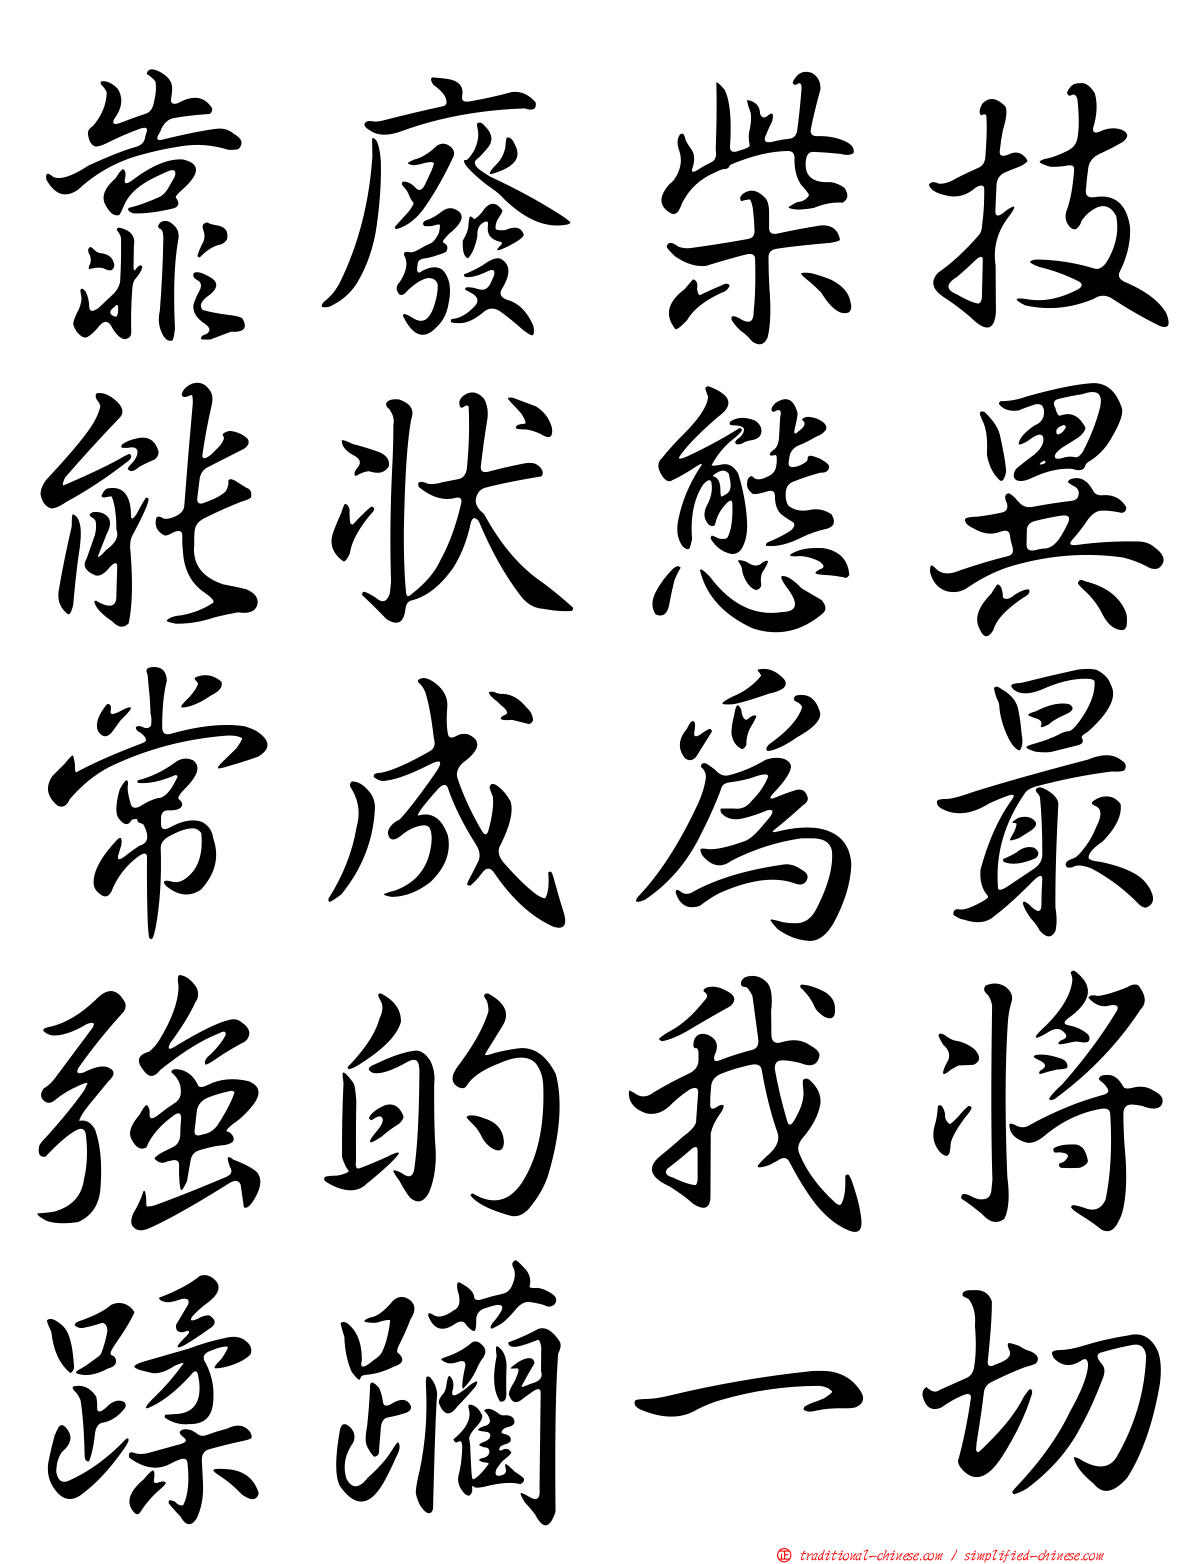 靠廢柴技
能狀態異
常成為最
強的我將
蹂躪一切
正 traditional-chinese.com / simplified-chinese.com